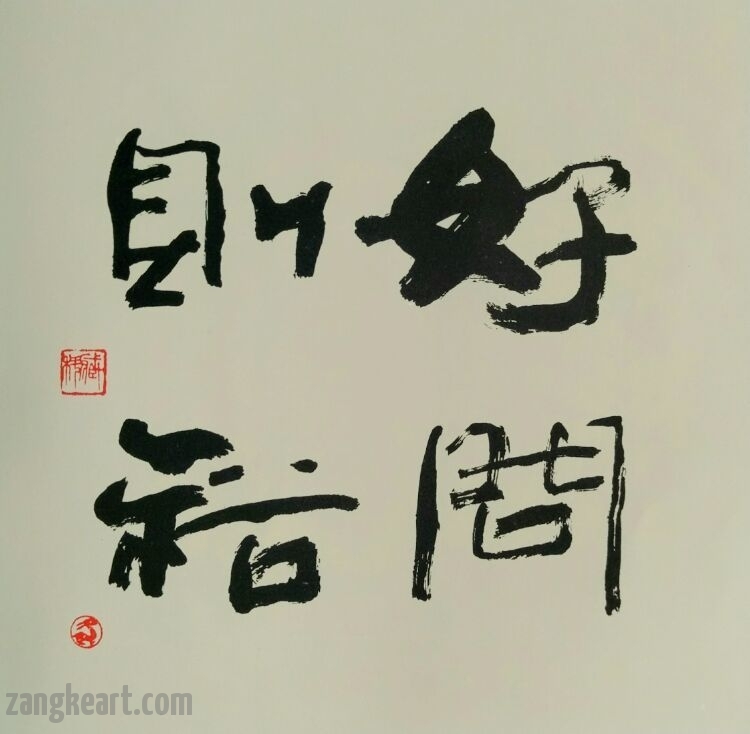 好問
則裕
zangkeart.com